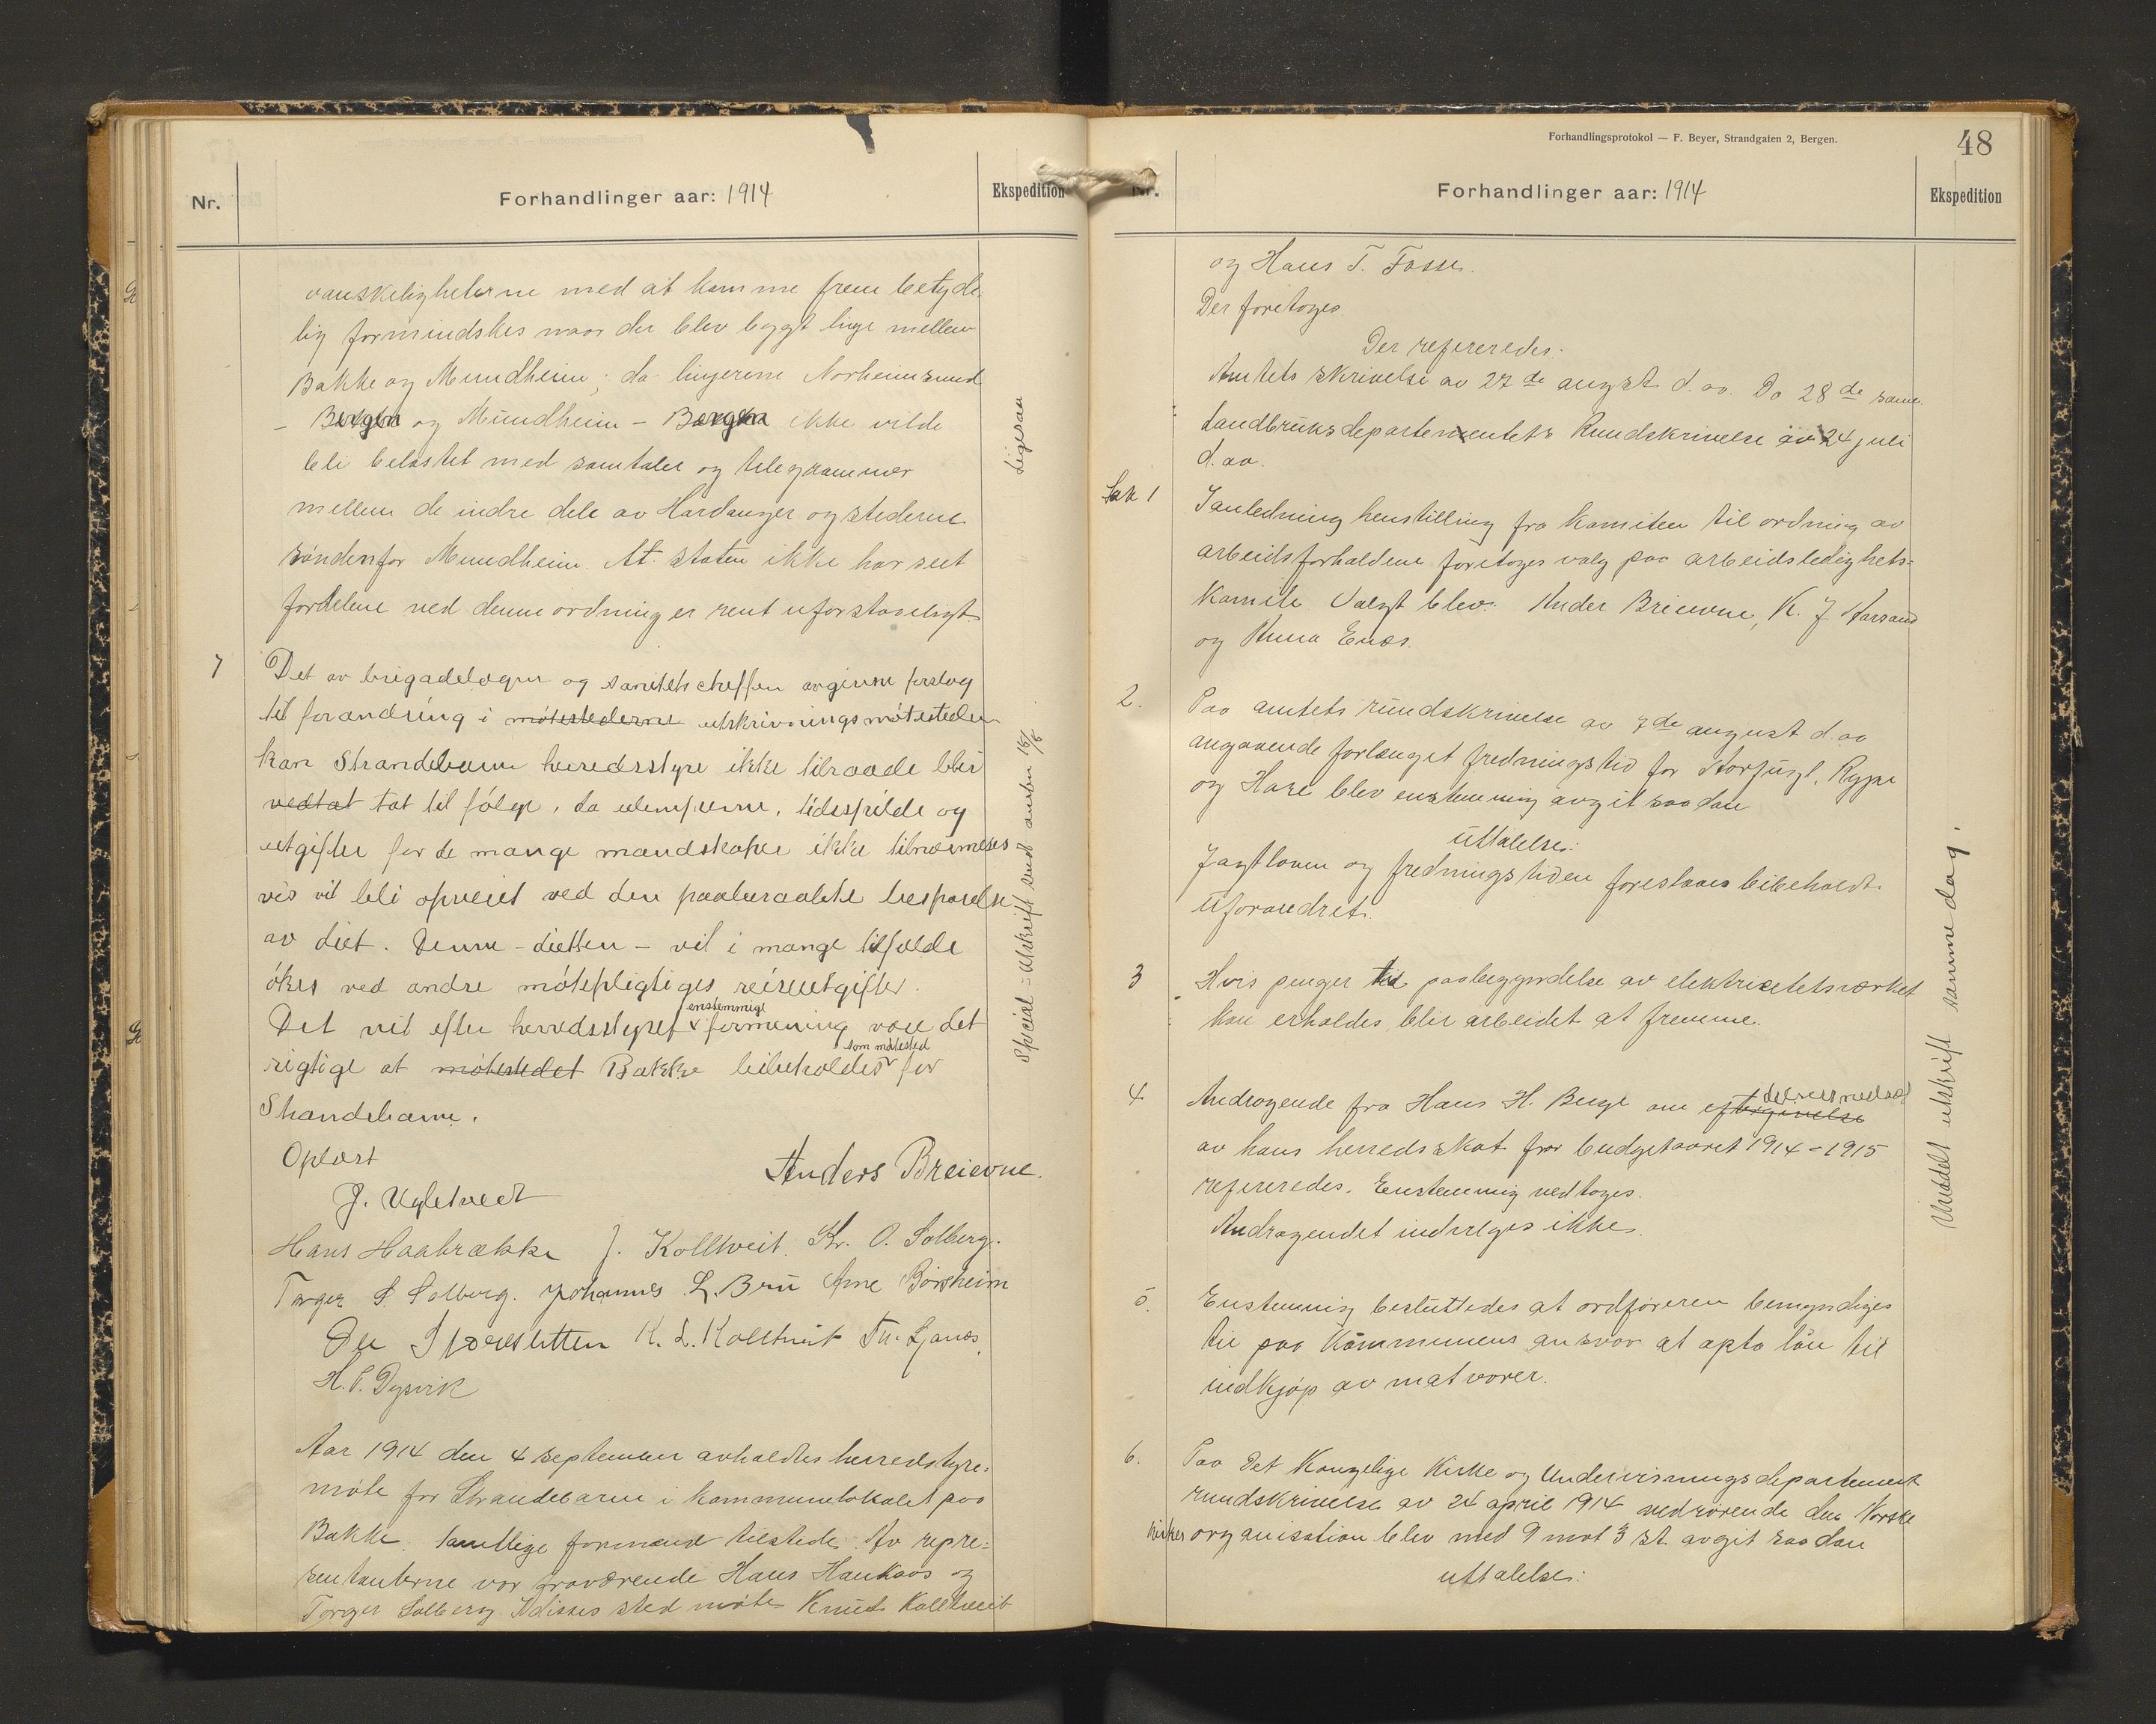 Nr.
Forhandlinger aar: 1914
Ekspedition
vanskeligheterne med at komme frem betyde
lig formindskes naar der blev bygt linje mellem
Bakke og Mundheim, da linjerne Norheimsund
- Bergen og Mundheim - Bergen ikke vilde
bli belastet med samtaler og telegrammer
mellem de indre dele av Hardanger og stederne
söndenfor Mundheim. At staten ikke har seet
fordelene ved denne ordning er rent uforstaaeligt
Ligesaa
7
Det av brigadelægen og sanitetscheffen avgivne forslag
til forandring i mötestederne utskrivningsmötesteder
kan Strandebarm herredsstyre ikke tilraade blir
vedtat tat til fölge, da ulemperne, tidsspilde og
utgifter for de mange mandskaper ikke tilnærmelses
vis vil bli opveiet ved den paaberaabte besparelse
av diet. Denne - dietten - vil i mange tilfælde
ökes ved andre mötepligtiges reiseutgifter.
enstemmige
Det vil efter herredsstyret formening være det
som mötested
rigtige at mötestedet Bakke beibeholdes for
Strandebarm.
Special=utskrift sendt amtet 18/6
Oplæst
Anders Breievne.
J. Ugletveit
Hans Haabrække J. Kolltveit. Kr. O. Solberg.
Torger S. Solberg. Johannes L. Bru Arne Börsheim
Ole Skorsletten K. L. Kolltveit Th. Ljones.
H. T. Dysvik
Aar 1914 den 4 september avholdtes herredstyre=
möte for Strandebarm i kommunelokalet paa
Bakke. Samtlige formænd tilstede. Av repre=
sentanterne var fraværende Hans Haukaas og
Torger Solberg I disses sted mötte Knut Kolltveit
Forhandlingsprotokol — F. Beyer, Strandgaten 2, Bergen.
48
Nr.
Forhandlinger aar: 1914
Ekspedition
og Hans T. Fosse.
Der foretoges
Der refereredes:
Amtets skrivelse av 27de august d. aa. Do 28de samme
Landbruksdepartementets Rundskrivelse av 24 juli
d. aa.
Sak 1
I anledning henstilling fra komiteen til ordning av
arbeidsforholdene foretoges valg paa arbeidsledighets=
komite Valgt blev: Ander Breievne, K. J. Aarsand
og Anna Enæs.
2.
Paa amtets rundskrivelse av 7de august d. aa
angaaende forlænget fredningstid for Storfugl, Rype
og Hare blev enstemmig avgit saadan
uttalelse:
Jagtloven og fredningstiden foreslaaes bibeholdt
uforandret.
3
Hvis penger til paabegyndelse av elektricitetsverket
kan erholdes, blir arbeidet at fremme.
4
Andragende fra Hans H. Berge om eftergivelse
delvis nedsat
av hans herredsskat for budgetaaret 1914-1915
refereredes. Enstemmig vedtoges.
Andragendet indvilges ikke.
5.
Enstemmig besluttedes at ordföreren bemyndiges
til paa Kommunens ansvar at opta lån til
indkjøp av matvarer.
6.
Paa Det Kongelige Kirke og Undervisningsdepartement
rundskrivelse av 24 april 1914 vedrörende den Norske
kirkes organisation blev med 9 mot 3 st. avgit saadan
uttalelse:
Meddelt utskrift samme dag.